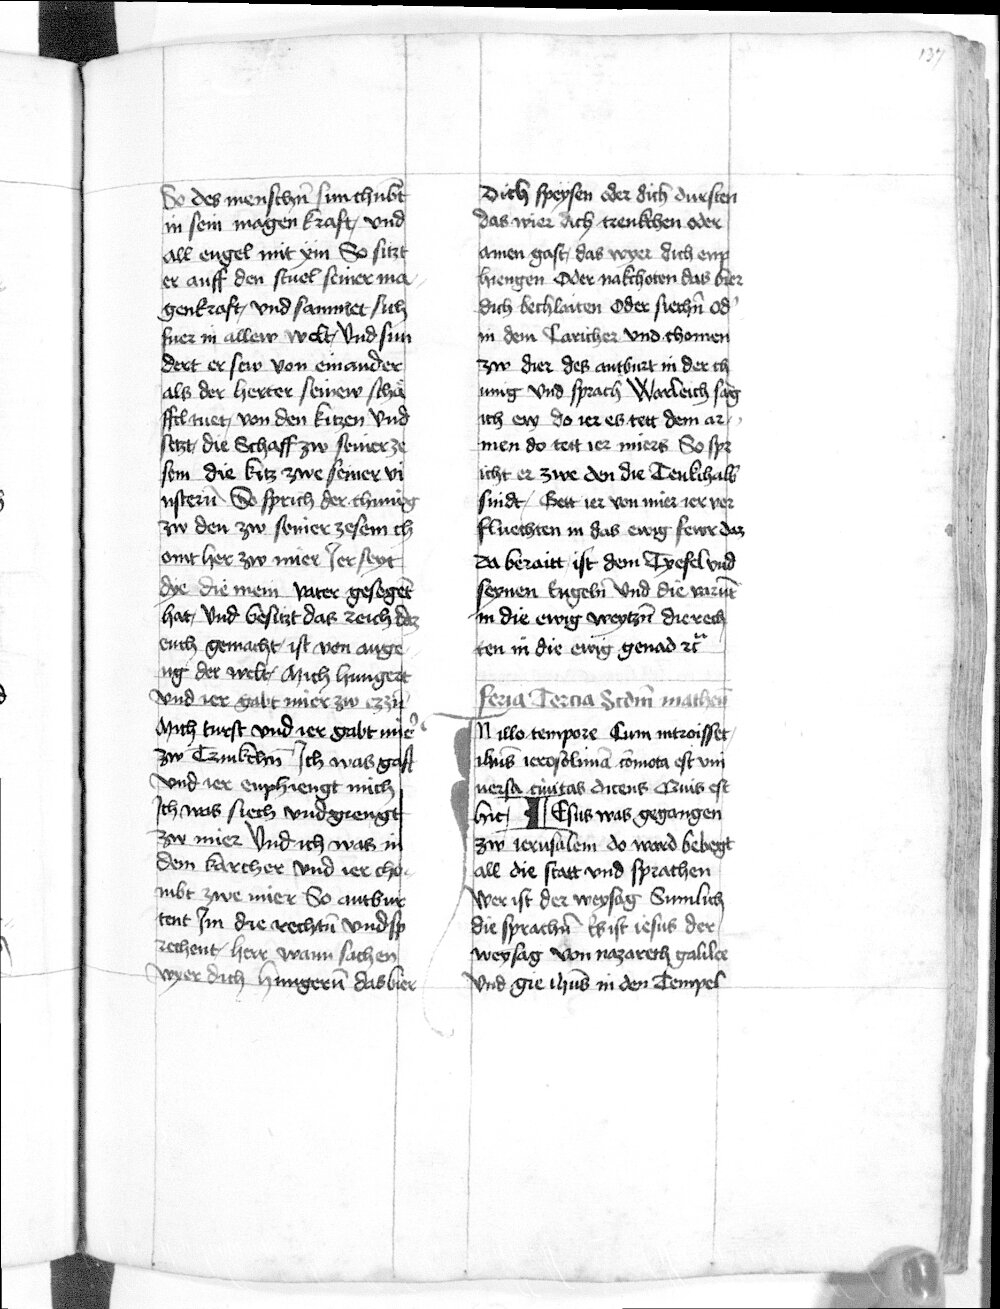 137
So des menschn̄ sun chūbt
in sein magen kraft / vnd
all engel mit ym So sitzt
er auff den stuel seiner ma
genkraft / vnd sammet sich
fuer in allew welt / Vnd sun
dert er sew von einander
als der herter seinew schä
ffel tuet / von den kitzen Vnd
setzt / die Schaff zw seiner ze
sem die kitz zwe seiner vi
nstern̄ So sprich der chunig
zw den zw seiner zesem ch
omt her zw mier Ier seyt
dye die mein vater gesegēt
hat / Vnd besitzt das reich daz
euch gemacht / ist von ange
ng der welt / Mich hungert
vnd ier gabt mier zw ezzn̄
Mich turst vnd ier gabt mier
zw Trinkchn̄ Ich was gast
vnd ier enphiengt mich
Ich was siech vnd giengt
zw mier Vnd ich was in
dem karcher vnd ier cho
mbt zwe mier So antbur
tent Im die rechtn̄ vnd sp
rechent / herr wann sachen
wyer dich hungern̄ das bier
Dich speysen oder dich dursten
das wier dich trenkchen oder
ainen gast / das wyer dich enp
hiengen Oder nakchoten das bier
dich bechlaiten Oder siechn̄ od'
in dem karicher vnd chomen
zw dier des antburt in der ch
unig vnd sprach Warleich sag
ich ew do ier es tett dem ar
men do tett ier miers So spr
icht er zwe den die Tenkchalb
sindt / Gett ier von mier ier ver
fluechten in das ewig fewr daz
da beraitt ist dem Tyefel vnd
seynen Engeln̄ Vnd die varnt
in die ewig weytzn̄ die rech
ten in die ewig genad rc̄
feria Tercia Scdm̄ matheū
IN illo tempore Cum introisset
ihūs ierosolimā cōmota est vni
uersa ciuitas dicens Quis est
hic / IEsus was gegangen
zw ierusalem do ward bebegt
all die statt vnd sprachen
wer ist der weysag Sumlich
die sprachn̄ Es ist iesus der
weysag von nazareth galilee
Vnd gie ihūs in den Tempel